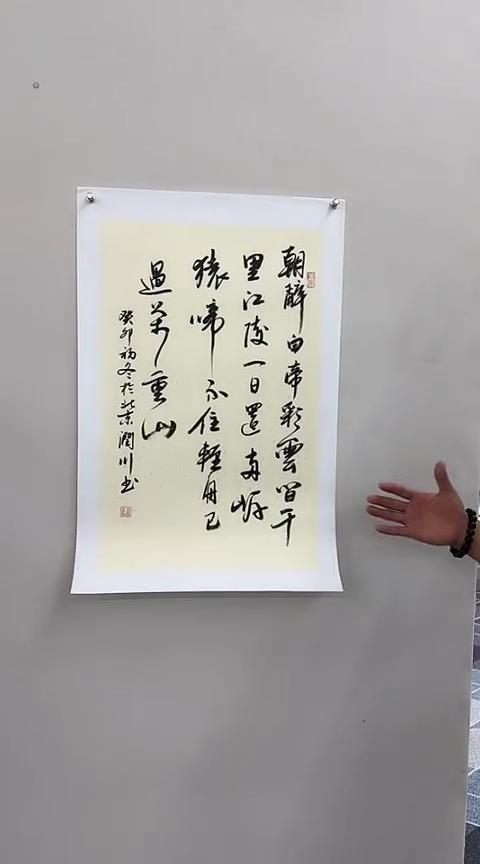 朝辭白帝彩雲間千
里江陵一日還両岸
猿啼不住輕舟已
過萬重山
癸卯初冬於北京潤川書